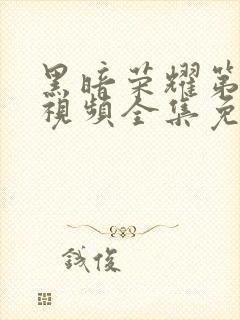 黑暗荣耀第
視頻全集免
鋮俊